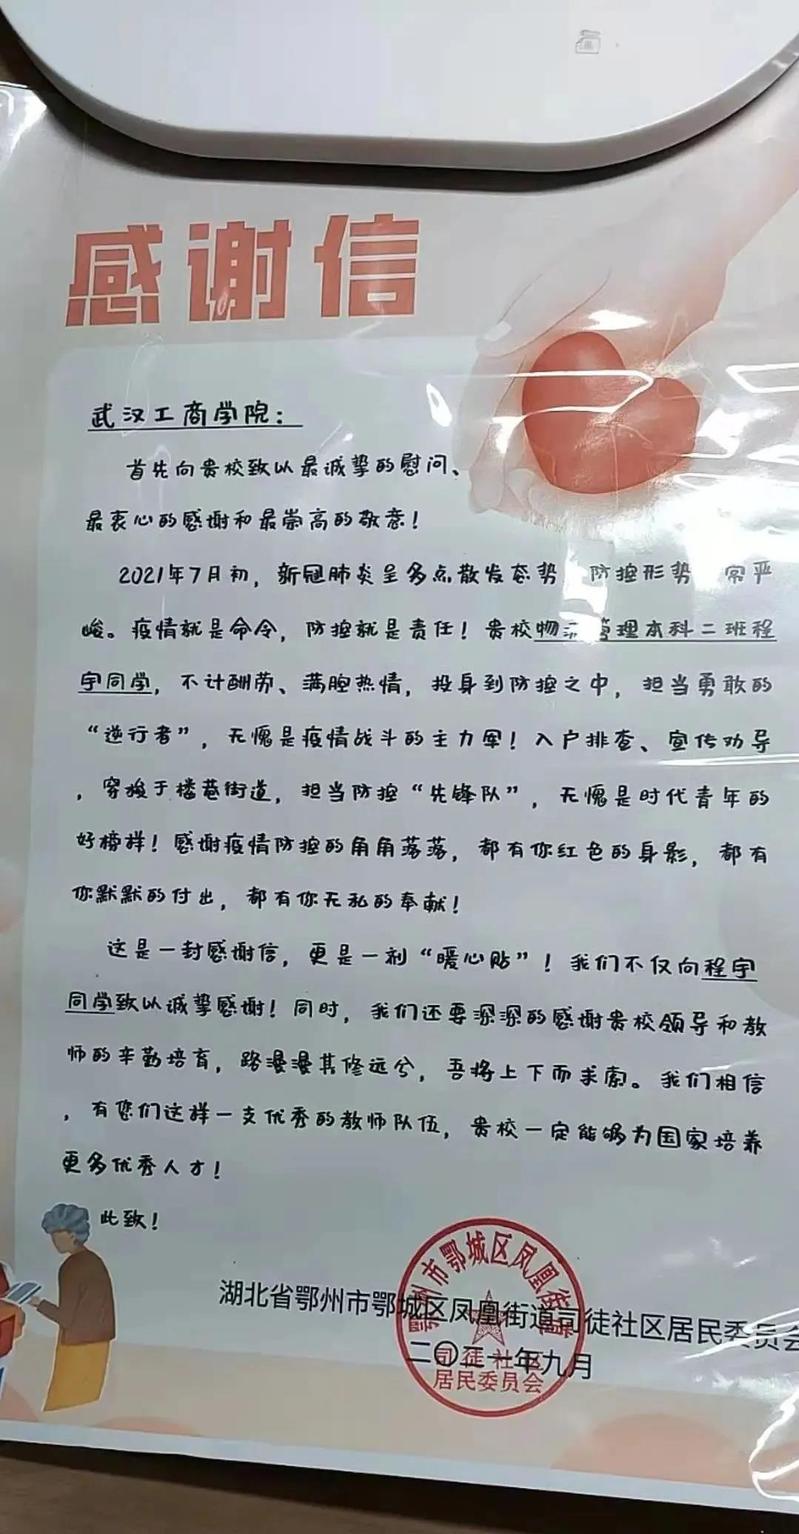 感谢信
武汉工商学院：
首先向贵校致以最诚挚的慰问、
最衷心的感谢和最崇高的敬意！
2021年7月初，新冠肺炎呈多点散发态势 防控形势 常严
峻。疫情就是命令，防控就是责任！贵校物 管理本科二班程
宇同学，不计酬劳、满胞热情，投身到防控之中，担当勇敢的
“逆行者”，无愧是疫情战斗的主力军！入户排查、宣传劝导
，穿梭于楼巷街道，担当防控“先锋队”，无愧是时代青年的
好榜样！感谢疫情防控的角角落落，都有你红色的身影，都有
你默默的付出，都有你无私的奉献！
这是一封感谢信，更是一剂“暖心贴”！我们不仅向程宇
同学致以诚挚感谢！同时，我们还要深深的感谢贵校领导和教
师的辛勤培育，路漫漫其修远兮，吾将上下而求索。我们相信
，有您们这样一支优秀的教师队伍，贵校一定能够为国家培养
更多优秀人才！
此致！
湖北省鄂州市鄂城区凤凰街道司徒社区居民委员会
二〇二一年九月
鄂州市鄂城区凤凰街道
司徒社区
居民委员会